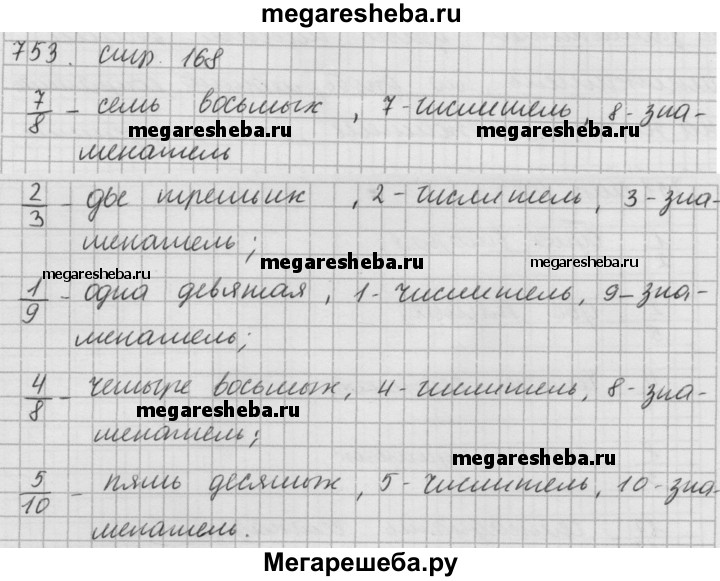 megaresheba.ru
753. стр. 168
7/8 - семь восьмых, 7-числитель, 8-зна-
megaresheba.ru megaresheba.ru
менатель
2/3 - две третьих, 2-числитель, 3-зна-
менатель;
megaresheba.ru
megaresheba.ru megaresheba.ru
1/9 - одна девятая, 1-числитель, 9-зна-
менатель;
4/8 - четыре восьмых, 4-числитель, 8-зна-
megaresheba.ru
менатель;
megaresheba.ru
5/10 - пять десятых, 5-числитель, 10-зна-
менатель.
Мегарешеба.ру